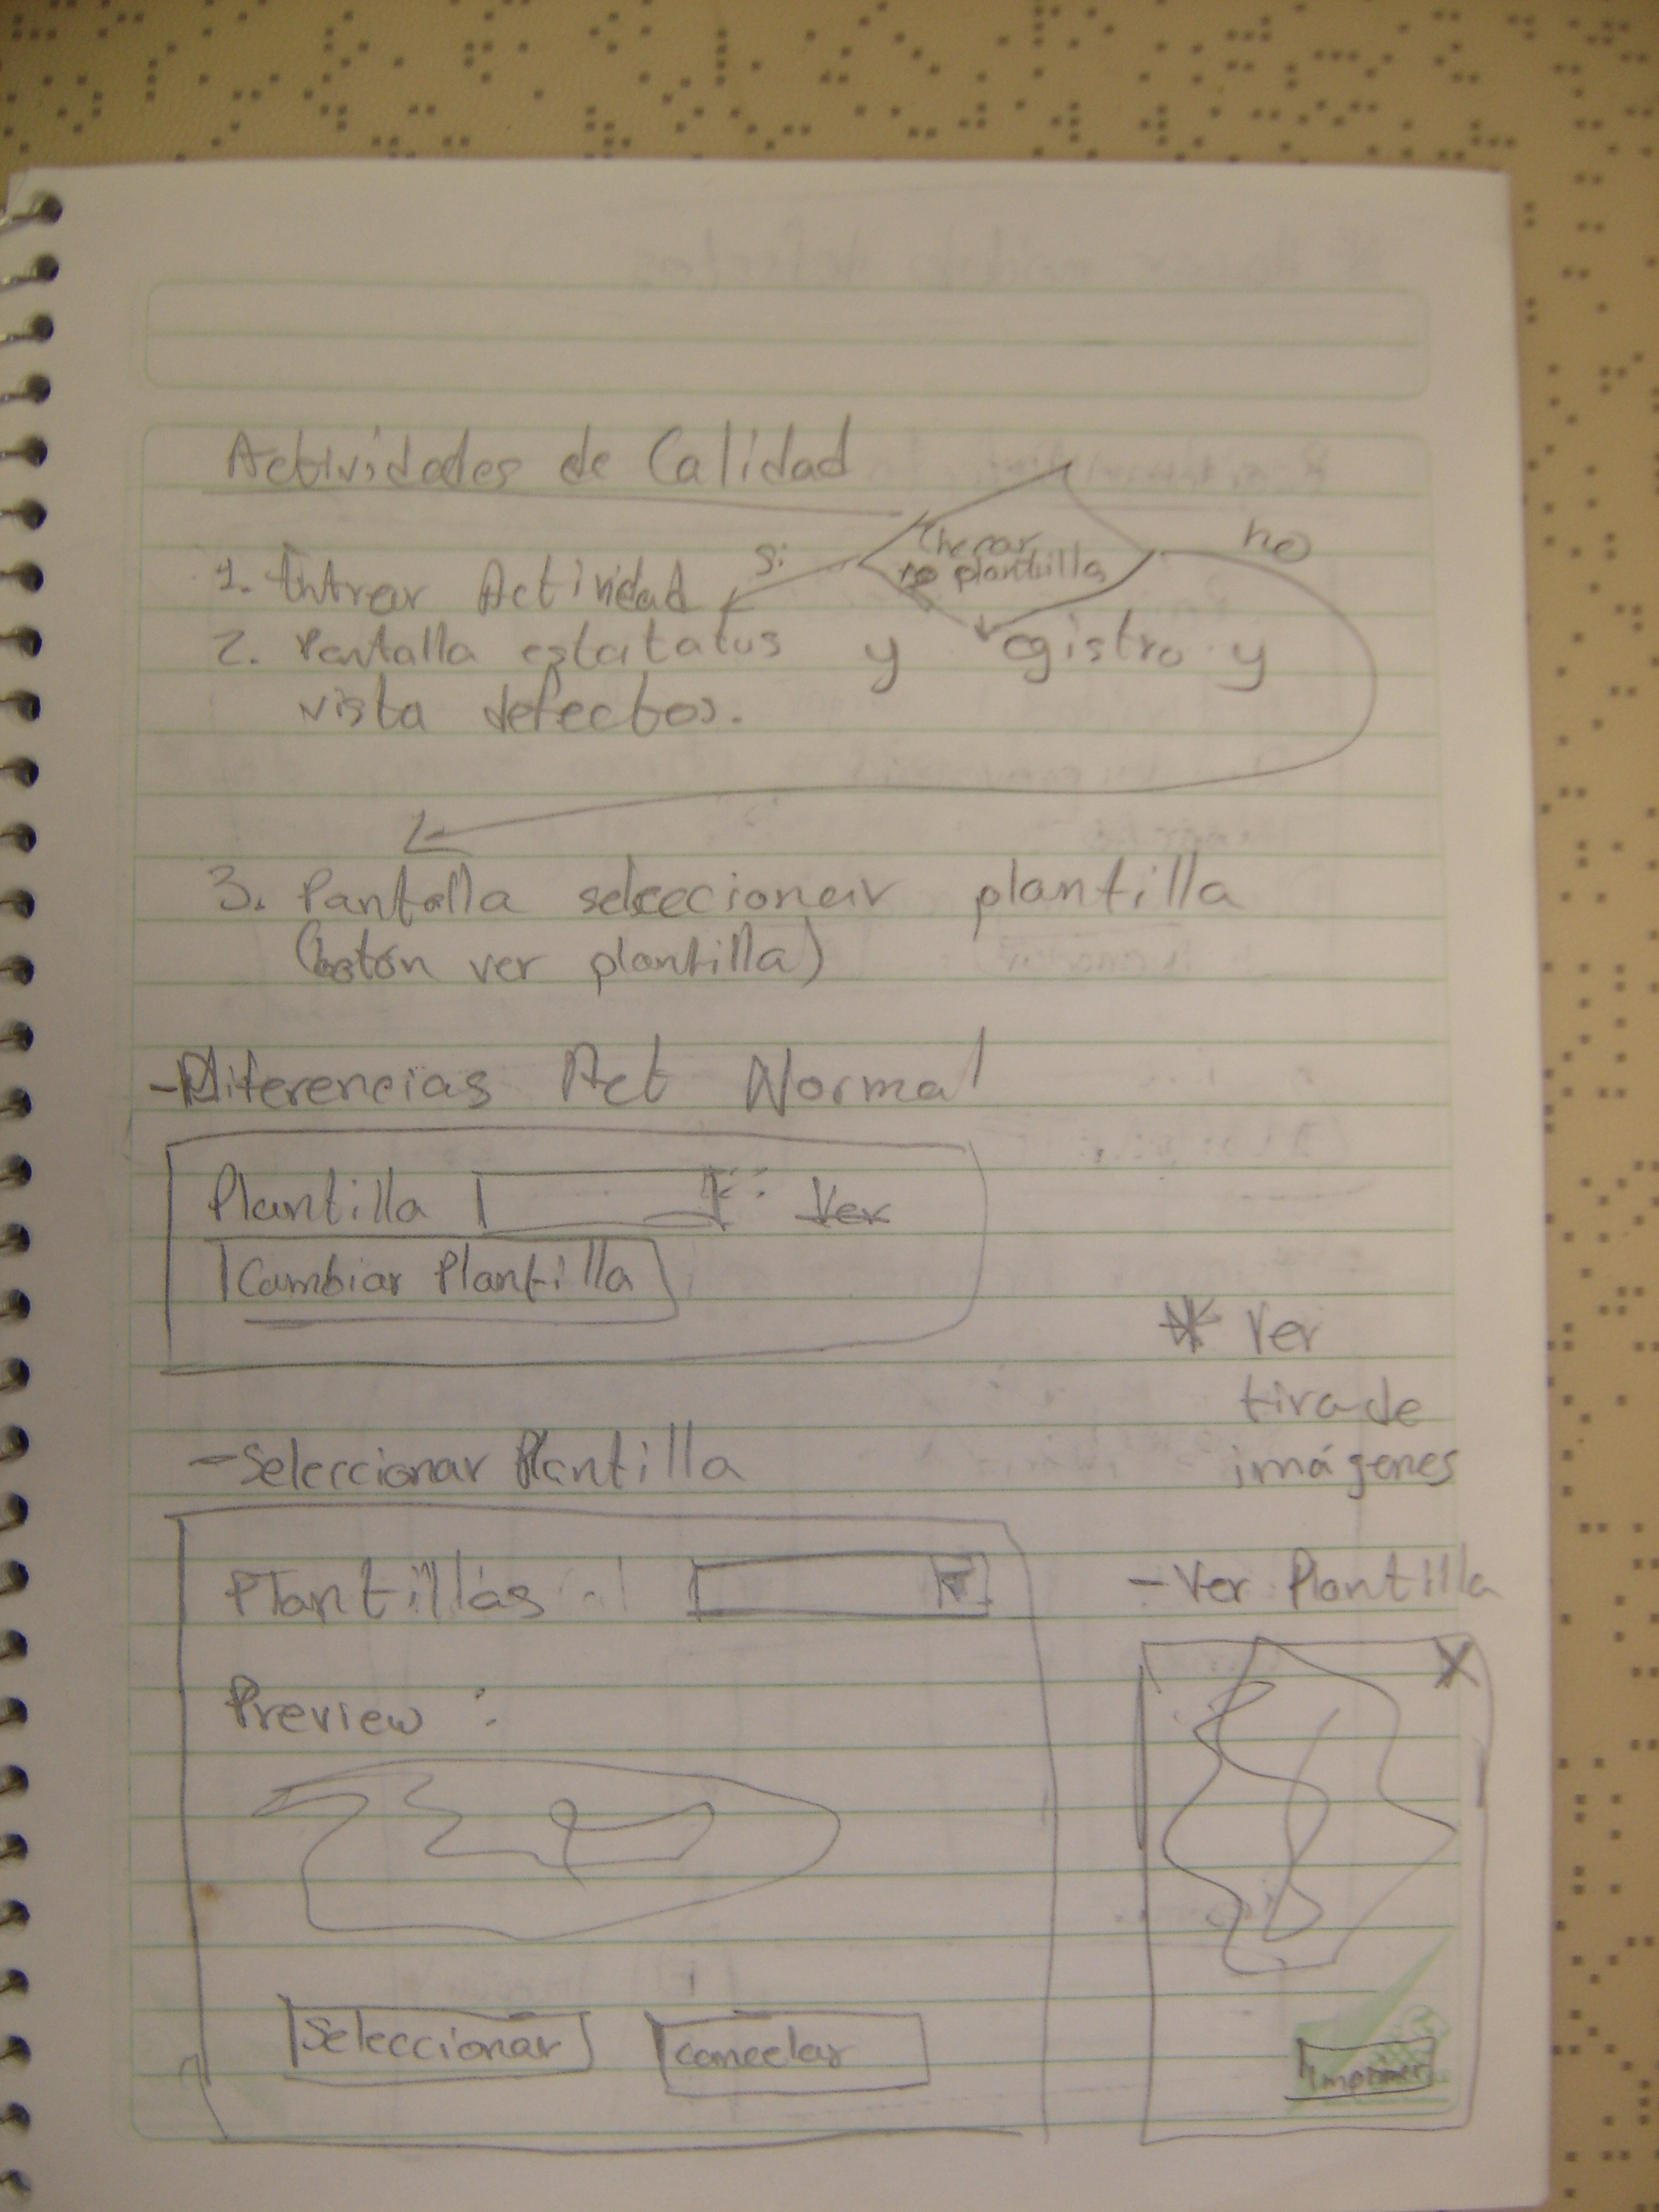 Actividades de Calidad
Checar
plantilla
si
no
1. Entrar Actividad
2. Pantalla estatatus y registro y
vista defectos.
3. Pantalla seleccionar plantilla
(botón ver plantilla)
- Diferencias Act Normal
Plantilla Ver
Cambiar Plantilla
* Ver
tira de
imágenes
- Seleccionar Plantilla
Plantillas
- Ver Plantilla
X
Preview :
Seleccionar
cancelar
Imprimir